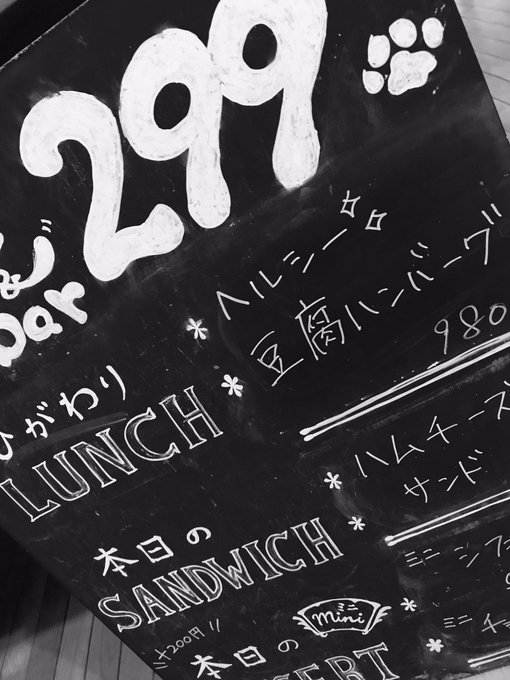 299
&
bar
ヘルシー
豆腐ハンバーグ
980
ひがわり
LUNCH
ハムチーズ
サンド
本日の
SANDWICH
+200円
ミニ
mini
本日の
ミニ シフ
ミニ チ
SERT